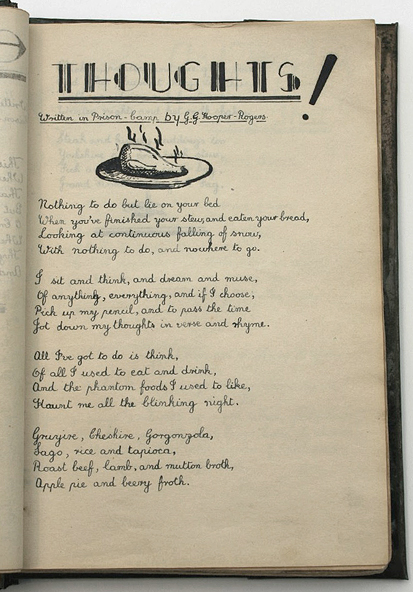 THOUGHTS!
Written in Prison-Camp by G.G. Hooper-Rogers.
Nothing to do but lie on your bed
When you've finished your stew, and eaten your bread,
Looking at continuous falling of snow,
With nothing to do, and nowhere to go.
I sit and think, and dream and muse,
Of anything, everything, and if I choose;
Pick up my pencil, and to pass the time
Jot down my thoughts in verse and rhyme.
All I've got to do is think,
Of all I used to eat and drink,
And the phantom foods I used to like,
Haunt me all the blinking night.
Gruyire, Cheshire, Gorgonzola,
Sago, rice and tapioca,
Roast beef, lamb, and mutton broth,
Apple pie and beery froth.